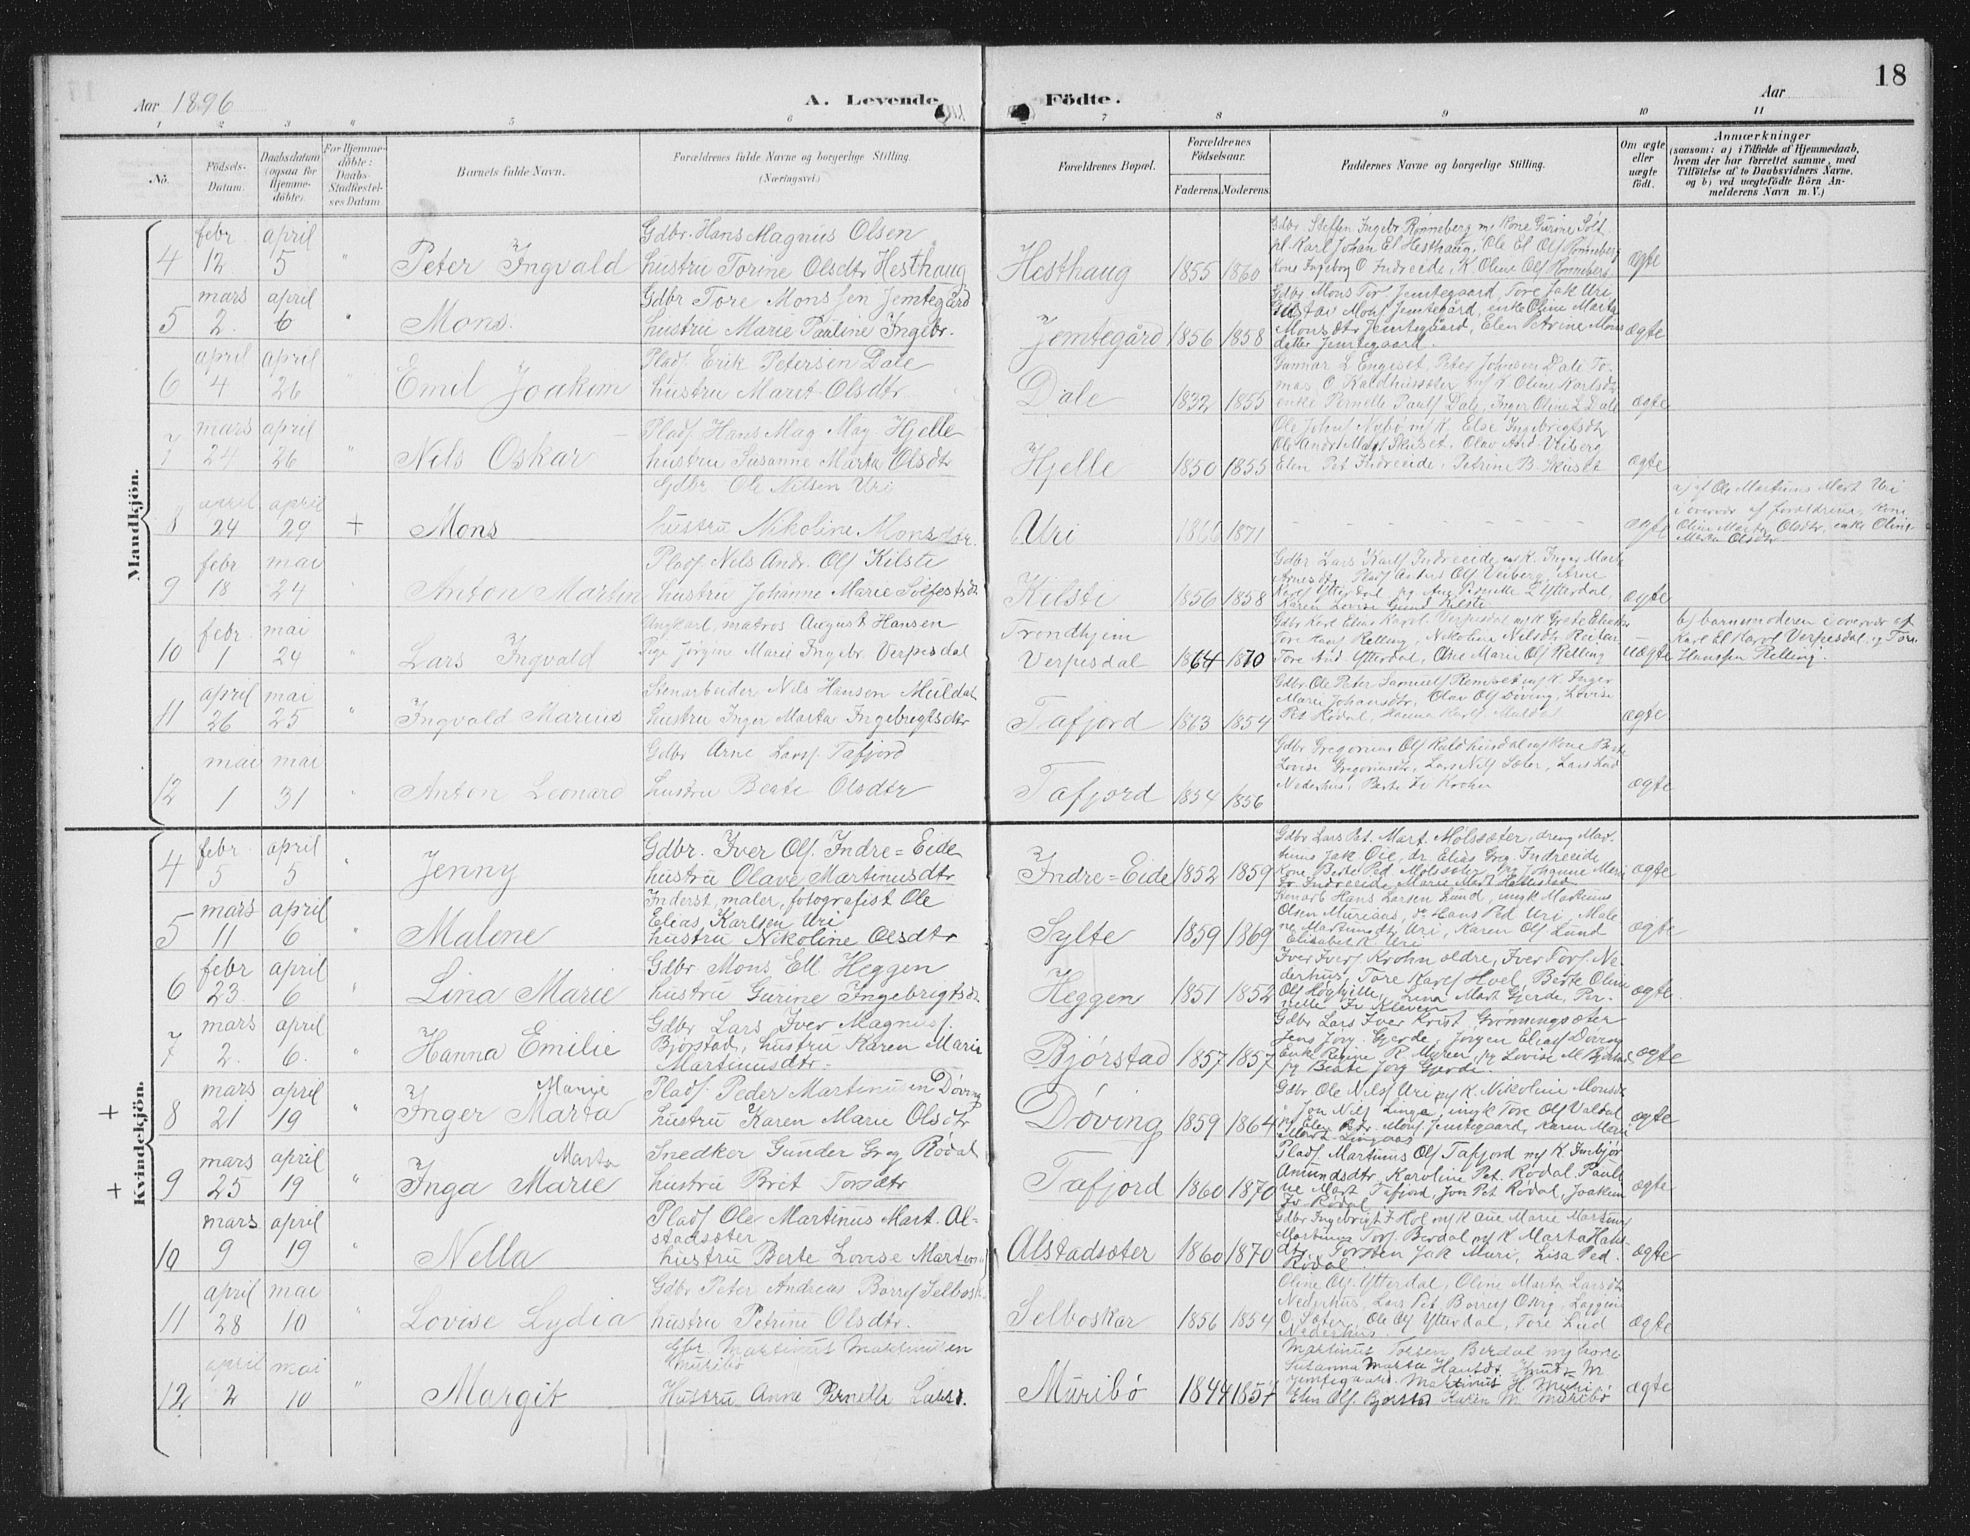 18
Aar 1896
A. Levende
Födte.
Aar
1 2 3 " 5 6 7 8 9 10 11
No.
Födsels-Datum.
Daabsdatum (ogsaa for Hjemme-döbte).
For Hjemme-döbte: Daabs-Stadfæstel-ses Datum
Barnets fulde Navn.
Forældrenes fulde Navne og borgerlige Stilling. (Næringsvei.)
Forældrenes Bopæl.
Forældrenes Födselsaar.
Faderens. Moderens.
Faddernes Navne og borgerlige Stilling.
Om ægte eller uægte födt.
Anmærkninger
(saasom: a) i Tilfælde af Hjemmedaab, hvem der har forrettet samme, med Tilföielse af to Daabsvidners Navne, og b) ved uægtefödte Börn An-melderens Navn m. V.)
Mandkjön.
4 febr 12 april 5 " Peter Ingvald
Gdbr. Hans Magnus Olsen
hustru Torine Olsdtr Hesthaug
Hesthaug 1855 1860
Kone Ingeborg O Indreeide, K. Oline Olf Rønneberg
ægte
5 mars 2. april 6 " Mons.
Gdbr Tore Monssen Jemtegård
hustru Marie Pauline Ingebr.
Jemtegård 1856 1858
Gdbr Mons Tor Jemtegaard, Tore Jak Uri
Gustav Monf Jemtegård, enke Oline Marta
Monsdtr Jemtegaard, Elen Petrine Mons
datter Jemtegaard.
ægte
6 april 4 april 26 " Emil Joakim
Pladf. Erik Petersen Dale
hustru Maret Olsdtr
Dale 1832 1855
Gunnar L Engeset, Peter Johnsen Dale To-
mas O Kaldhussæter m/k Oline Karlsdtr
enke Pernelle Paulf Dale, Inger Oline L Dale
ægte
7 mars 24 april 26 " Nils Oskar
Pladf. Hans Mag May. Hjelle
hustru Susanne Marta Olsdtr
Hjelle 1850 1855
Ole Johnf Nybø m/k. Else Ingebrigtsdtr
Elen Pet Indreeide, Petrine B. Skuset
ægte
8 april 24 april 29 + Mons
Gdbr Ole Nilsen Uri
hustru Nikoline Monsdtr.
Uri 1866 1871
ægte
a) af Ole Martinus Mart Uri
i overvær af forældrene, kone
Oline Marta Olsdtr, enke Oline
Maria Olsdtr
9 febr 18 mai 24 " Anton Martin
Pladf Nels Andr. Olf Kilsti
hustru Johanne Marie Solfestsdt
Kilsti 1856 1858
Karen Lovise Gund Kilsti
ægte
10 febr. 1 mai 24 " Lars Ingvald
Ungkarl, matros August Hansen
Pige Jørgine Marie Ingebr. Verpesdal
Trondhjem
Verpesdal 1864 1870
Gdbr Karl Elias Karol. Verpesdal m/k Grete Eliasdtr
Tore Hansf Relling, Nikolina Nilsdtr Reitan
Tore And. Ytterdal, Ane Marie Olf Relling
uægte
b) barnemoderen i overvær af
Karl El Karol Verpesdal og Tore
Hanssen Relling.
11 april 26 mai 25 " Ingvald Marius
Stenarbeider Nils Hansen Muldal
hustru Inger Marta Ingebregtsdtr
Tafjord 1863 1854
Gdbr Ole Peter Samuelf Remset m/k. Inger
Marie Johansdtr, Olav Olf Døving, Lovise
Pet Rødal, Hanna Karlf Muldal
ægte
12 mai 1 mai 31 " Anton Leonard
Gdbr Arne Larsf. Tafjord
hustru Beate Olsdtr
Tafjord 1854 1856
Gdbr Gregorius Olf Kaldhusdal m/kone Berte
Lovise Gregoriusdtr, Lars Nilf Sæter, Lars Lud
Nederhus, Berte Iv Krohn
ægte
Kvindekjön.
4 febr. 5 april 5 " Jenny
Gdbr. Iver Olf. Indre=Eide
hustru Olave Martinusdtr
Indre=Eide 1852 1859
Gdbr Lars Pet. Mart. Molssæter, dreng Mar-
tinus Jak Oie, dr Elias Greg Indreeide
Kone Berte Ped Molssæter, pg Johanne Mari
Iv Indreeide, Marie Mart Hallestad
ægte
5 mars 11 april 6 " Malene
Inderst, maler, fotografist Ole
Elias Karlsen Uri
hustru Nikoline Olsdtr
Sylte 1859 1869
Stenarb Hans Larsen Lund, ungk Martinus
Olsen Murians, dr Hans Ped Uri, Male
ne Martinusdtr Uri, Karen Olf Lund
Elisabet K. Uri
ægte
6 febr 23. april 6 " Lina Marie
Gdbr Mons Ell Heggen
hustru Gurine Ingebrigtsdt
Heggen 1851 1852
Iver Iversf Krohn ældre, Iver Torsf. Ne-
derhus, Tore Karlf Hoel, Berte Oline
Olf Høghjelle, Lina Mart Gjerde, Per-
nelle Iv Kleven
ægte.
7 mars 2. april 6. " Hanna Emilie
Gdbr Lars Iver Magnusf.
Bjørstad, hustru Karen Marie
Martinusdtr.
Bjørstad 1857 1857
Gdbr Lars Iver Krist Grønningsæter
Jens Jørg. Gjerde, Jørgen Eliasf Døving
Enke Regine R. Muren, pg Lovise M Bjørstad
pg Beate Jørg Gjerde
ægte
+ 8 mars 21 april 19 " Inger Marta Marie
Pladf. Peder Martinussen Døving
hustru Karen Marie Olsdtr
Døving 1859 1864
Gdbr Ole Nilsf Uri m/k. Nikoline Monsdt
" Jon Nilf Linge, ungk Tore Olf Valdal
pg Elen Petr. Monsf Jemtegaard, Karen Marie
Mart Lingaas
ægte
+ 9 mars 25 april 19 " Inga Marie Marta
Snedker Gunder Greg Rødal
hustru Brit Torsdtr
Tafjord 1860 1870
Pladf Martinus Olf Tafjord m/k. Ingbjør
Amundsdtr, Karoline Pet. Rødal, Pauli
ne Mart Tafjord, Jon Pet Rødal, Joakim
Iv Rødal
ægte
10 mars 9 april 19 " Nella
Pladf Ole Martinus Mart. Al-
stadsæter
hustru Berte Lovise Martinus
Alstadsæter 1860 1870
Gdbr Ingebrigt I Hol m/k Ane Marie Martinus
Martinus Torsf. Berdal m/k Marta Hans
dtr, Torsten Jak Muri, Lisa Ped.
Rødal.
ægte
11 april 28 mai 10 " Lovise Lydia
Gdbr Peter Andreas Børresf Selbosk.
hustru Petrine Olsdtr.
Selboskar 1856 1854
Oline Olf. Ytterdal, Oline Marta Larsdt
O. Sæter, Ole Olf Ytterdal, Tore Lud
Nederhus.
ægte
12 april 2 mai 10 " Margit
Gbr Martinus Martinussen
Muribø
Hustru Anne Pernelle Larsd.
Muribø 1844 1857
Martinus Torsen Berdal m/ horre
Susanna Marta Hansdt Knut M
Jemtegaard. Martinus H. Muri
Elen Olf. Bjørstad Karen M. Muribø
ægte